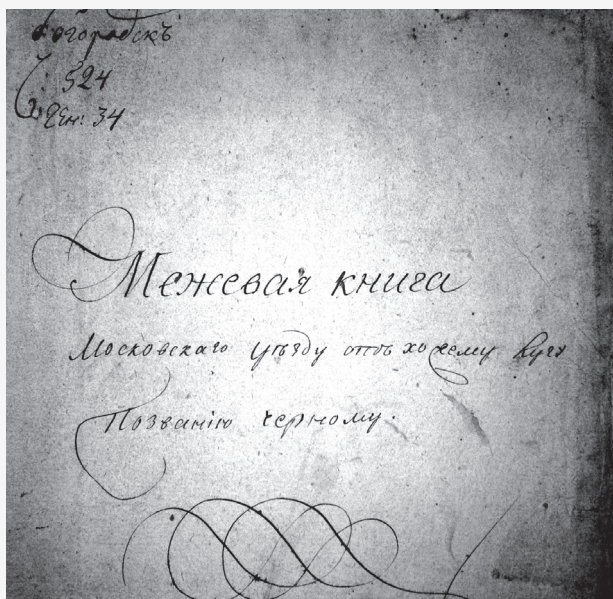 Богородскъ
524
Ген: 34
Межевая книга
Московскаго уѣзду отъхожему лугу
Позванію черному.